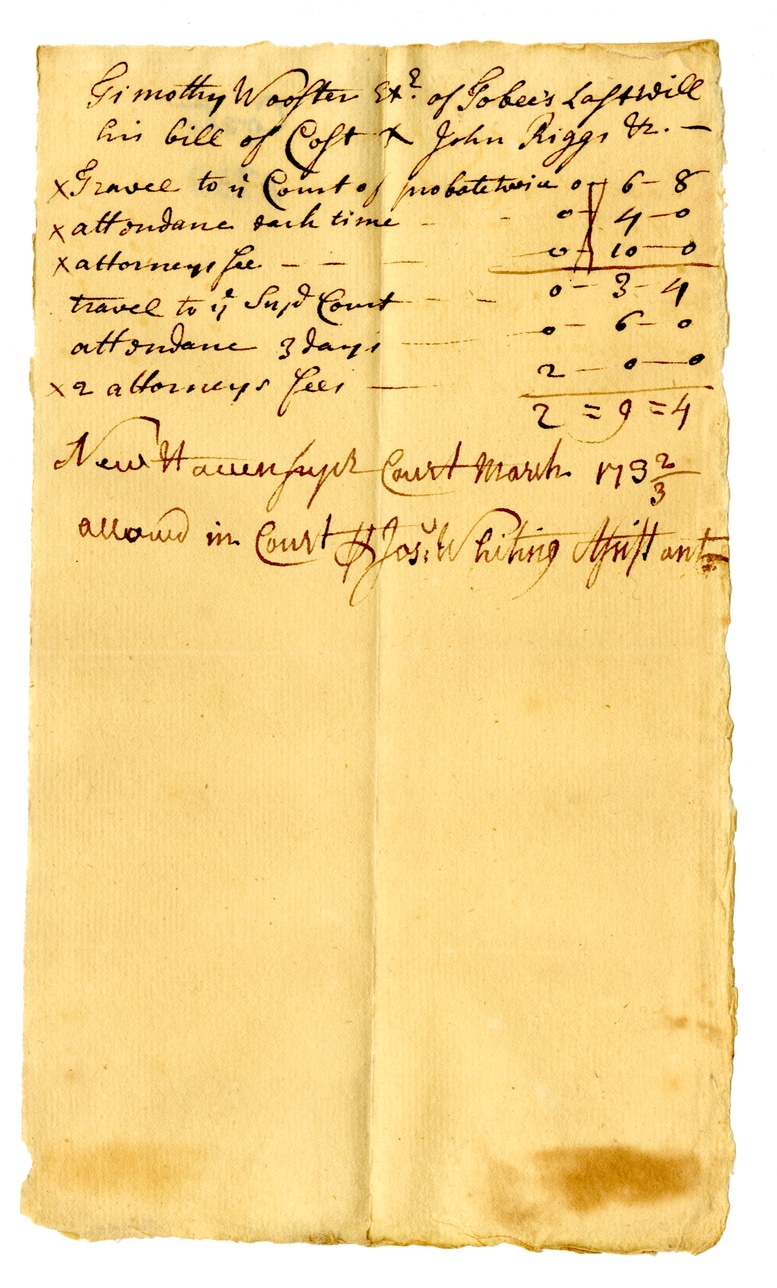 Timothy Wooster Exr. of Tobee's Last will
his bill of Cost x John Riggs &c. —
x Travel to ye Court of probate twice 0 - 6 - 8
x attendanc each time - - 0 - 4 - 0
x attorneys fee - - - 0 - 10 - 0
travel to ye Supr Court - - 0 - 3 - 4
attendanc 3 days - 0 - 6 - 0
x 2 attorneys fees — 2 - 0 - 0
2 = 9 = 4
New Haven Supr Court March 173 2/3
allowed in Court Jos: Whiting Assistant